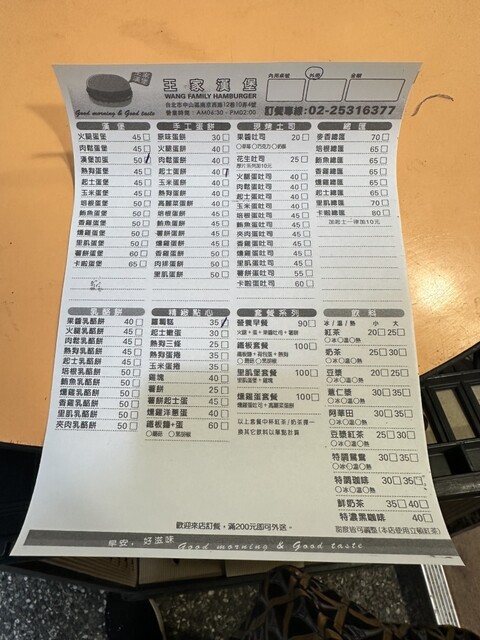 王家漢堡
WANG FAMILY HAMBURGER
台北市中山區南京西路12巷10弄4號
營業時間：AM06:30 - PM02:00
Good morning & Good taste
內用桌號 外帶 金額
訂餐專線:02-25316377
漢堡
火腿蛋堡 45
肉鬆蛋堡 45
漢堡加蛋 50
熱狗蛋堡 45
起士蛋堡 45
玉米蛋堡 45
培根蛋堡 50
鮪魚蛋堡 50
香雞蛋堡 50
燻雞蛋堡 50
里肌蛋堡 50
薯餅蛋堡 60
卡啦蛋堡 65
手工蛋餅
原味蛋餅 30
火腿蛋餅 40
肉鬆蛋餅 40
起士蛋餅 40
玉米蛋餅 40
熱狗蛋餅 40
高麗菜蛋餅 40
培根蛋餅 45
鮪魚蛋餅 45
香雞蛋餅 45
燻雞蛋餅 45
薯餅蛋餅 45
肉排蛋餅 50
里肌蛋餅 50
現烤土司
果醬吐司 20
草莓 巧克力 奶酥
花生吐司 25
厚片系列加10元
火腿蛋吐司 40
肉鬆蛋吐司 40
起士蛋吐司 40
玉米蛋吐司 40
培根蛋吐司 45
鮪魚蛋吐司 45
香雞蛋吐司 45
燻雞蛋吐司 45
里肌蛋吐司 45
薯餅蛋吐司 55
卡啦蛋吐司 60
總匯
麥香總匯 70
培根總匯 65
鮪魚總匯 65
香雞總匯 65
燻雞總匯 65
起士總匯 65
里肌總匯 70
卡啦總匯 80
加起士一律加10元
乳酪餅
果醬乳酪餅 40
火腿乳酪餅 45
肉鬆乳酪餅 45
熱狗乳酪餅 45
起士乳酪餅 45
培根乳酪餅 50
鮪魚乳酪餅 50
燻雞乳酪餅 50
香雞乳酪餅 50
里肌乳酪餅 50
夾肉乳酪餅 50
精緻點心
蘿蔔糕 35
起士嫩蛋 30
熱狗三條 25
熱狗蛋捲 35
玉米蛋捲 35
雞塊 40
薯餅 25
薯餅起士蛋 45
燻雞洋蔥蛋 40
鐵板麵+蛋 60
蘑菇 黑胡椒
套餐系列
營養早餐 90
火腿+蛋+果醬吐司+薯餅
鐵板套餐 100
鐵板麵+荷包蛋+熱狗
蘑菇 黑胡椒
里肌堡套餐 100
里肌蛋堡+雞塊
燻雞蛋套餐 100
燻雞蛋吐司+高麗菜蛋餅
以上套餐中杯紅茶/奶茶擇一
換其它飲料以單點計算
飲料
冰/溫/熱 小 大
紅茶 20 25
冰 溫 熱
奶茶 25 30
冰 溫 熱
豆漿 20 25
冰 溫 熱
薏仁漿 30 35
冰 溫 熱
阿華田 30 35
冰 溫 熱
豆漿紅茶 25 30
冰 溫 熱
特調鴛鴦 30 35
冰 溫 熱
特調咖啡 30 35
冰 溫 熱
鮮奶茶 35 40
特濃黑咖啡 40
甜度皆可調整(本店使用立頓紅茶)
歡迎來店訂餐，滿200元即可外送。
早安。好滋味 Good morning & Good taste